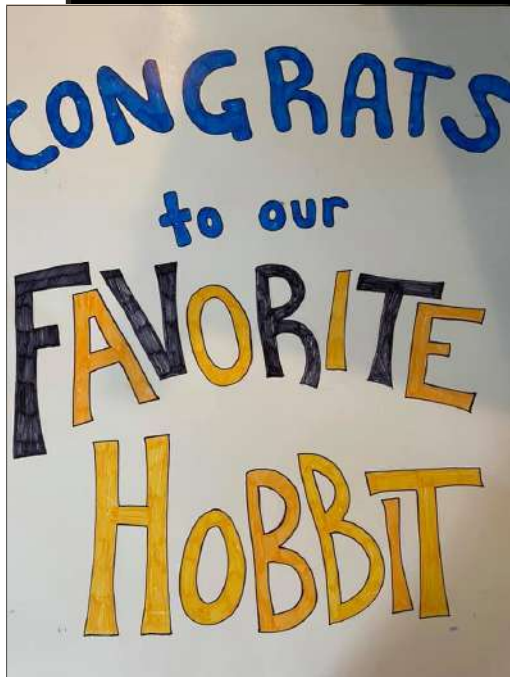 CONGRATS
to our
FAVORITE
HOBBIT